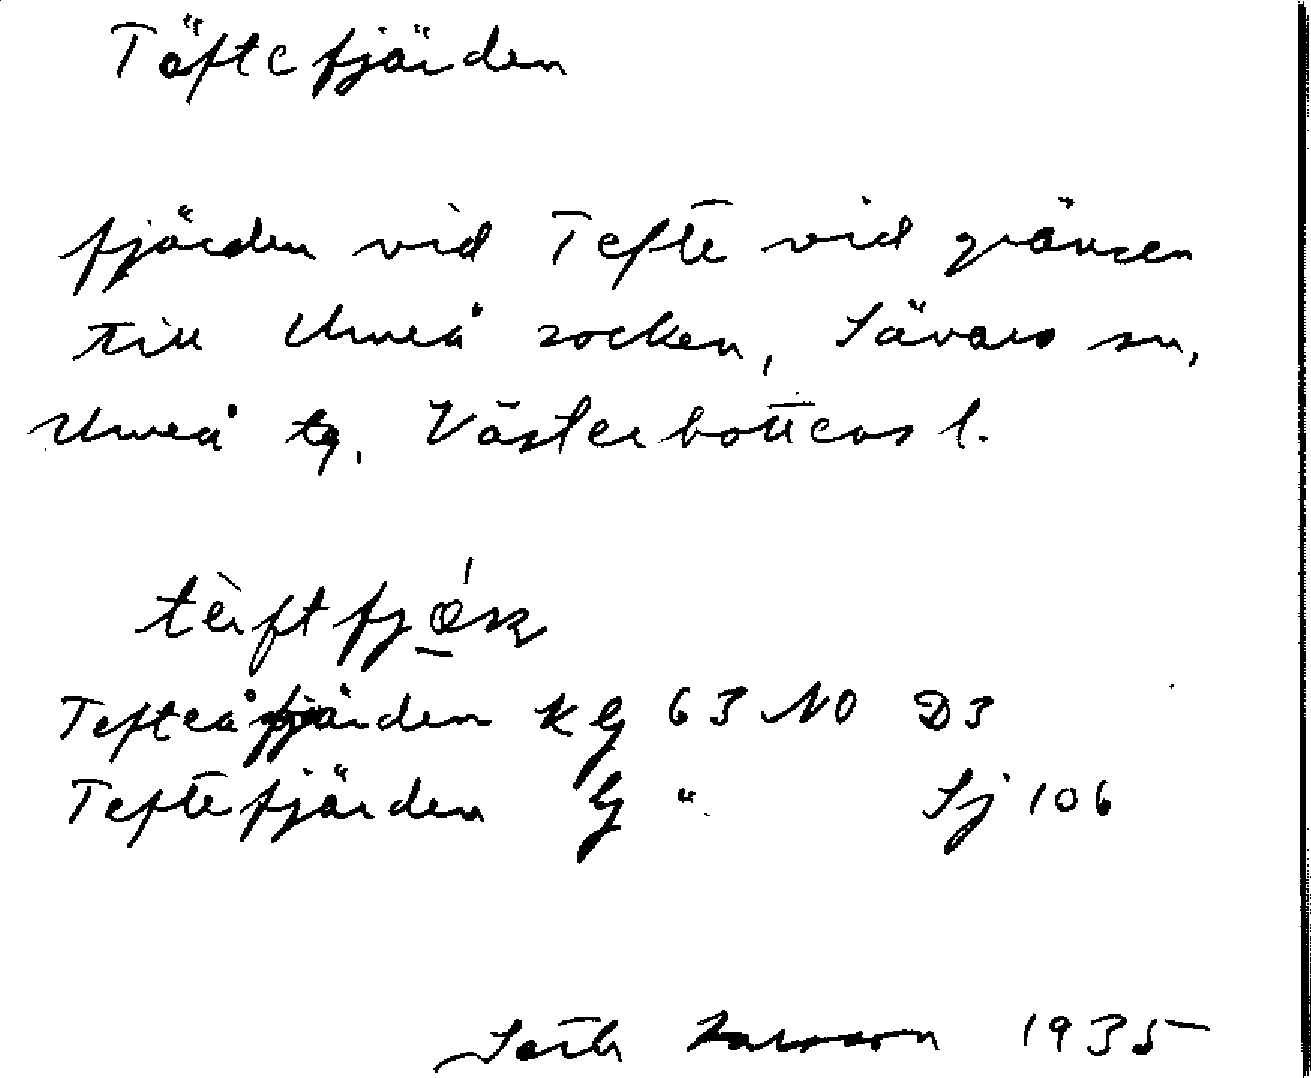 Täftefjärden
fjärden vid Tefte vid gränsen
till Umeå socken, Sävars sn,
Umeå tg. Västerbottens l.
Tefteåfjärden KG 63 NO D3
Teftefjärden G " Sj 106
Seth Larsson 1935